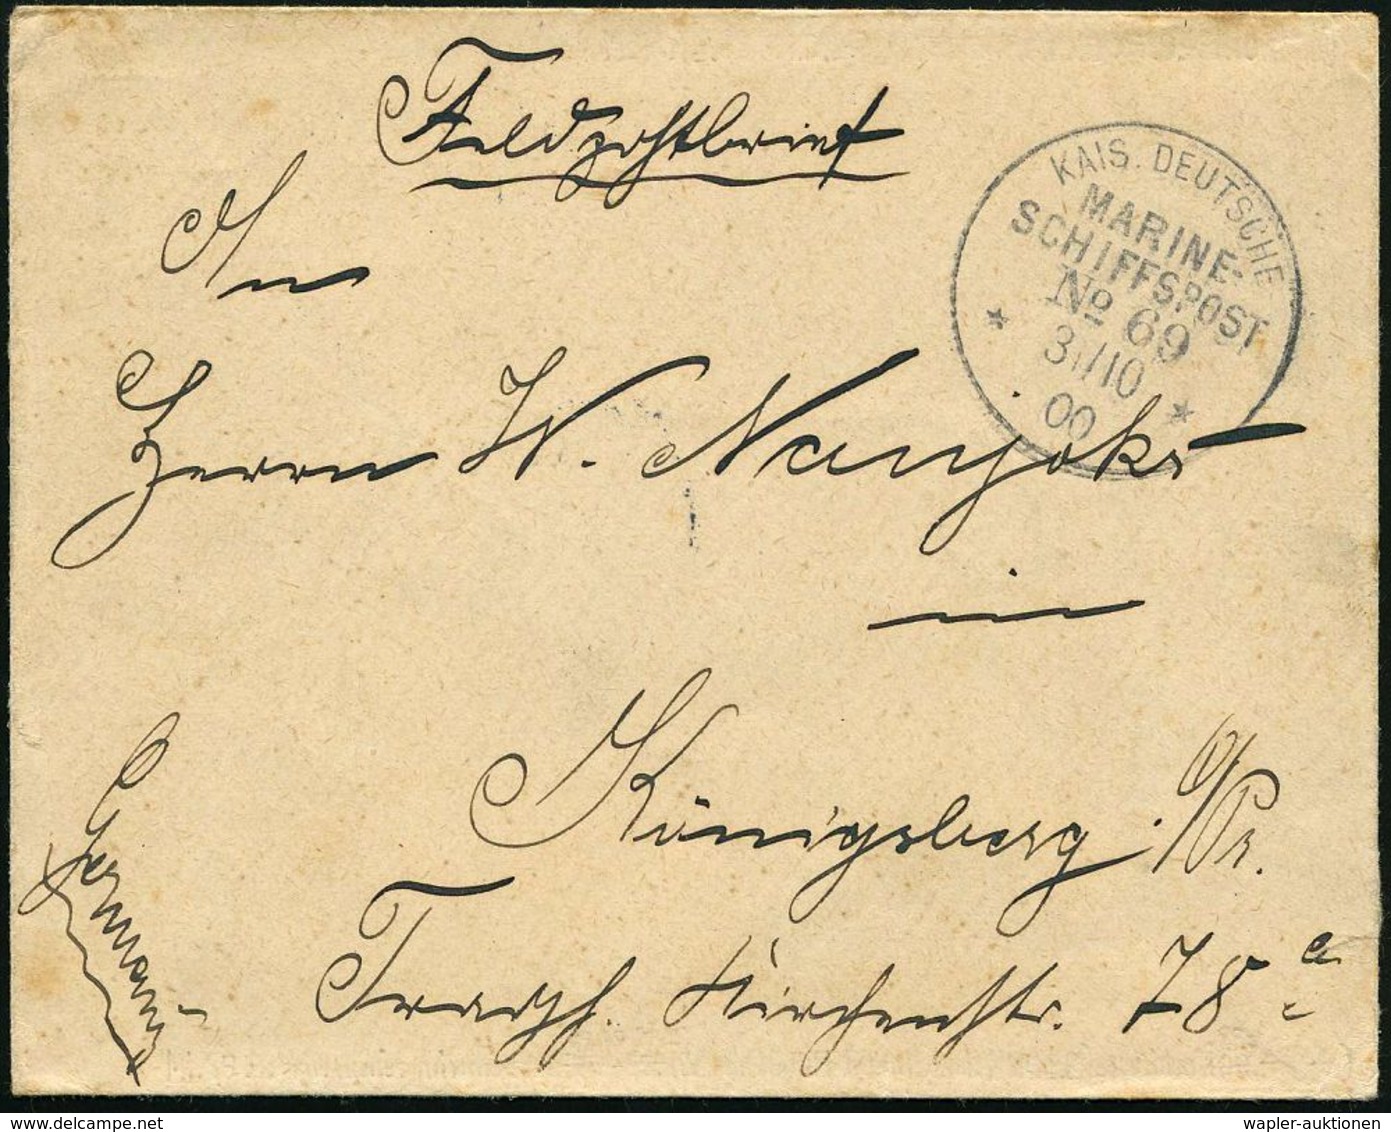 Feldpostbrief
KAIS. DEUTSCHE
MARINE-
SCHIFFSPOST
No 69
31/10
00
An
Herrn W. Nanjoks
in
Königsberg i/Pr.
Tragh. Kirchenstr. 78 a
Germany
wapler-auktionen